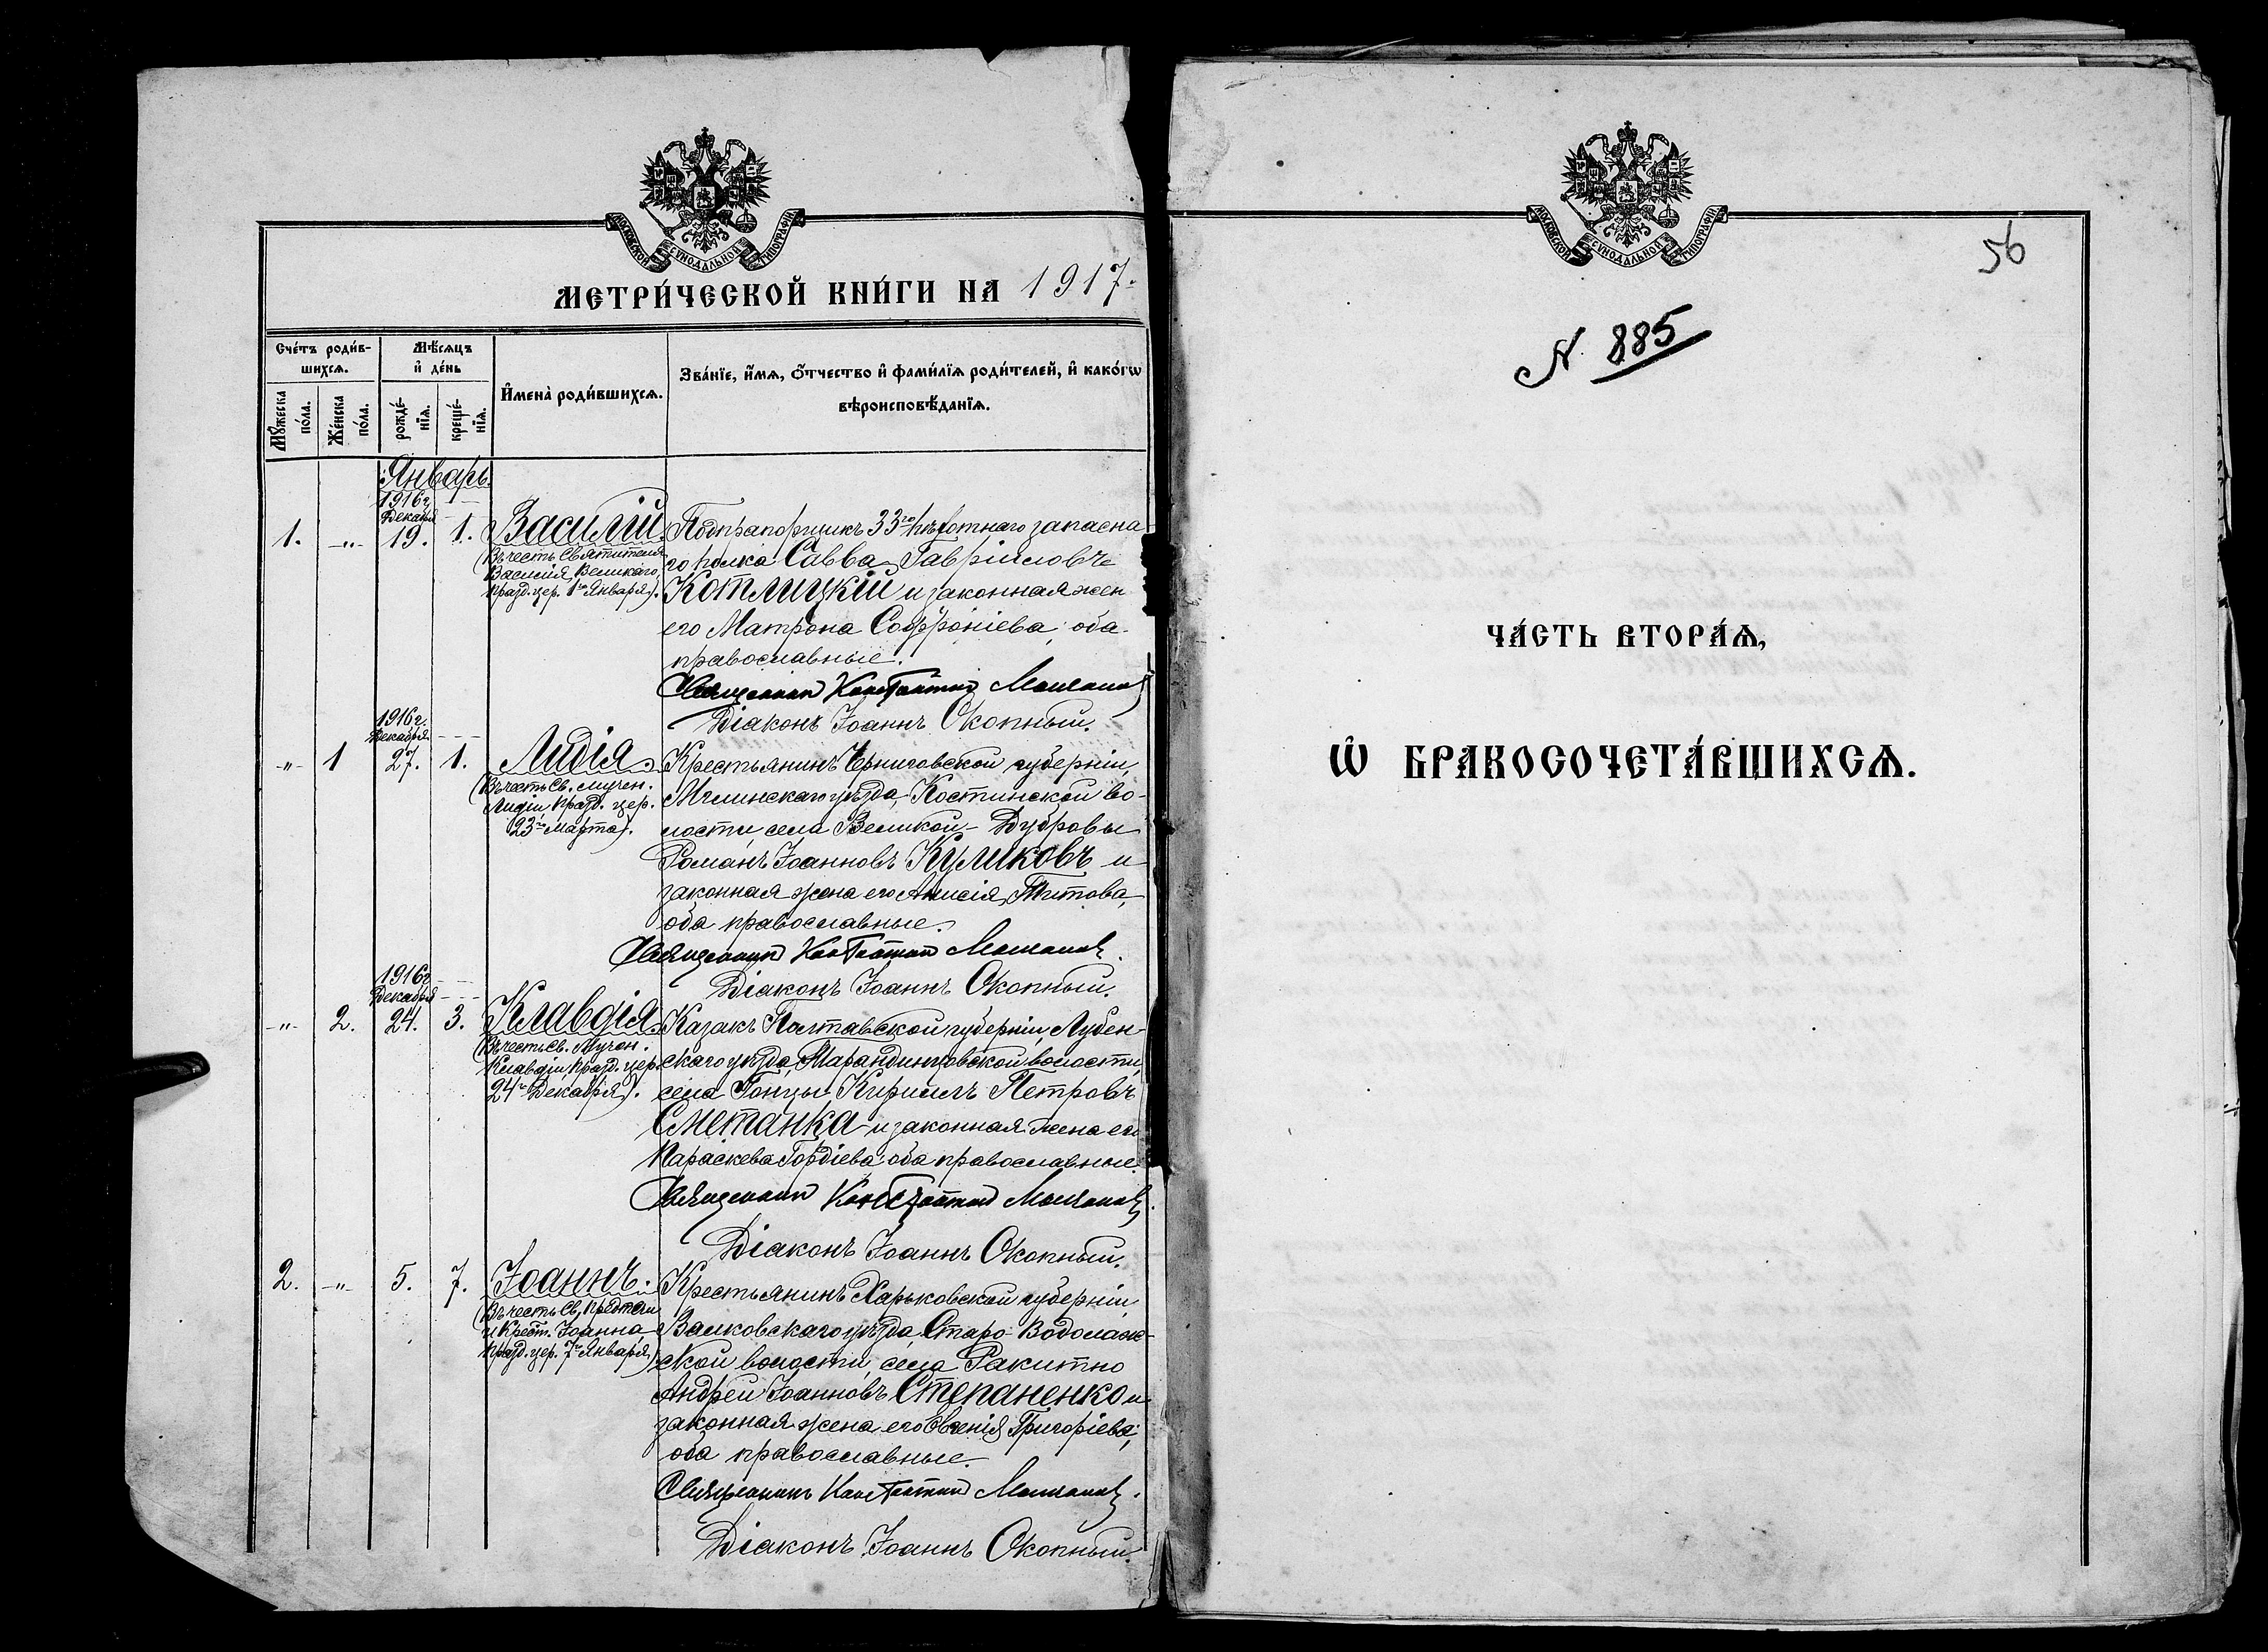 МОСКОВСКОЙ СУНОДАЛЬНОЙ ТИПОГРАФІИ
МЕТРИ́ЧЕСКОЙ КНИ́ГИ НА 1917.
Сче́тъ роди́в-
шихсѧ.
Мѣ́сѧцъ
и҆ де́нь
И҆мена̀ роди́вшихсѧ.
Зва́нїе, и҆́мѧ, ѻ҆́тчество и҆ фами́лїѧ роди́телей, и҆ како́гѡ
вѣроисповѣ́данїѧ.
Мꙋ́жеска
по́ла.
Же́нска
по́ла.
рожде́-
нїѧ.
креще́-
нїѧ.
Январь.
1916г.
Декабря
1. -"- 19. 1. Василій.
(Въ честь Святителя
Василія Великаго,
празд. цер. 1го Января).
Подпрапорщикъ 33го пѣхотнаго запасна-
го полка Савва Гавріиловъ
Котлицкій и законная жен
его Матрона Софроніева; оба
православные.
Священникъ Константинъ
Діаконъ Іоаннъ Окопный.
1916г.
Декабря
-"- 1 27. 1. Лидія.
(Въ честь Св. мучен.
Лидіи, празд. цер.
23го Марта).
Крестьянинъ Черниговской губерніи,
Мглинскаго уѣзда, Костинской во-
лости, села Великой-Дубровы
Романъ Іоанновъ Куликовъ и
законная жена его Анисія Титова,
оба православные.
Священникъ Константинъ
Діаконъ Іоаннъ Окопный.
1916г
Декабря
-"- 2. 24. 3. Клавдія.
(Въ честь Св. Мучен.
Клавдіи, празд. цер.
24го Декабря).
Казакъ Полтавской губерніи, Лубен-
скаго уѣзда, волости,
села Гонцы Кириллъ Петровъ
Сметанка и законная жена его
Параскева Гордіева; оба православные.
Священникъ Константинъ
Діаконъ Іоаннъ Окопный.
2. -"- 5. 7. Іоаннъ.
(Въ честь Св. Предтечи
и Крест. Іоанна,
празд. цер. 7го Января)
Крестьянинъ Харьковской губерніи,
Валковскаго уѣзда, Старо-Водолаж-
ской волости, села Ракитно
Андрей Іоанновъ Степаненко и
законная жена его Евгенія Григоріева;
оба православные.
Священникъ Константинъ
Діаконъ Іоаннъ Окопный.
МОСКОВСКОЙ СУНОДАЛЬНОЙ ТИПОГРАФІИ
56
N. 885
ЧА́СТЬ ВТОРА́Ѧ,
Ѡ҆ БРАКОСОЧЕТА́ВШИХСѦ.